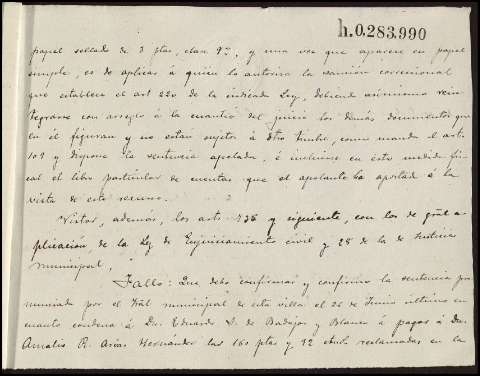 h.0.283.990
papel sellado de 3 ptas, clase 9ª, y una vez que aparece en papel
simple, es de aplicar á quien lo autoriza la sanción correccional
que establece el art 220 de la indicada Ley, debiend asimismo rein
tegrarse con arreglo á la cuantía del juicio los demás documentos que
en él figuran y no están sujetos á otro timbre, como manda el art.
109 y dispone la sentencia apelada, é incluirse en esta medida fis
cal el libro particular de cuentas que el apelante ha aportad á la
vista de este recurso.
Vistos, además, los arts 736 y siguiente, con los de gral a-
plicación, de la Ley de Enjuiciamiento civil y 28 de la de Justicia
municipal,
Fallo: Que debo confirmar y confirmo la sentencia pro
nunciada por el Tral municipal de esta villa el 26 de Junio ultimo en
cuanto condena á Dn. Eduardo S. de Badajoz y Blanco á pagar á Dn.
Amalio R. Arias Hernandez las 160 ptas y 92 reclamadas en la